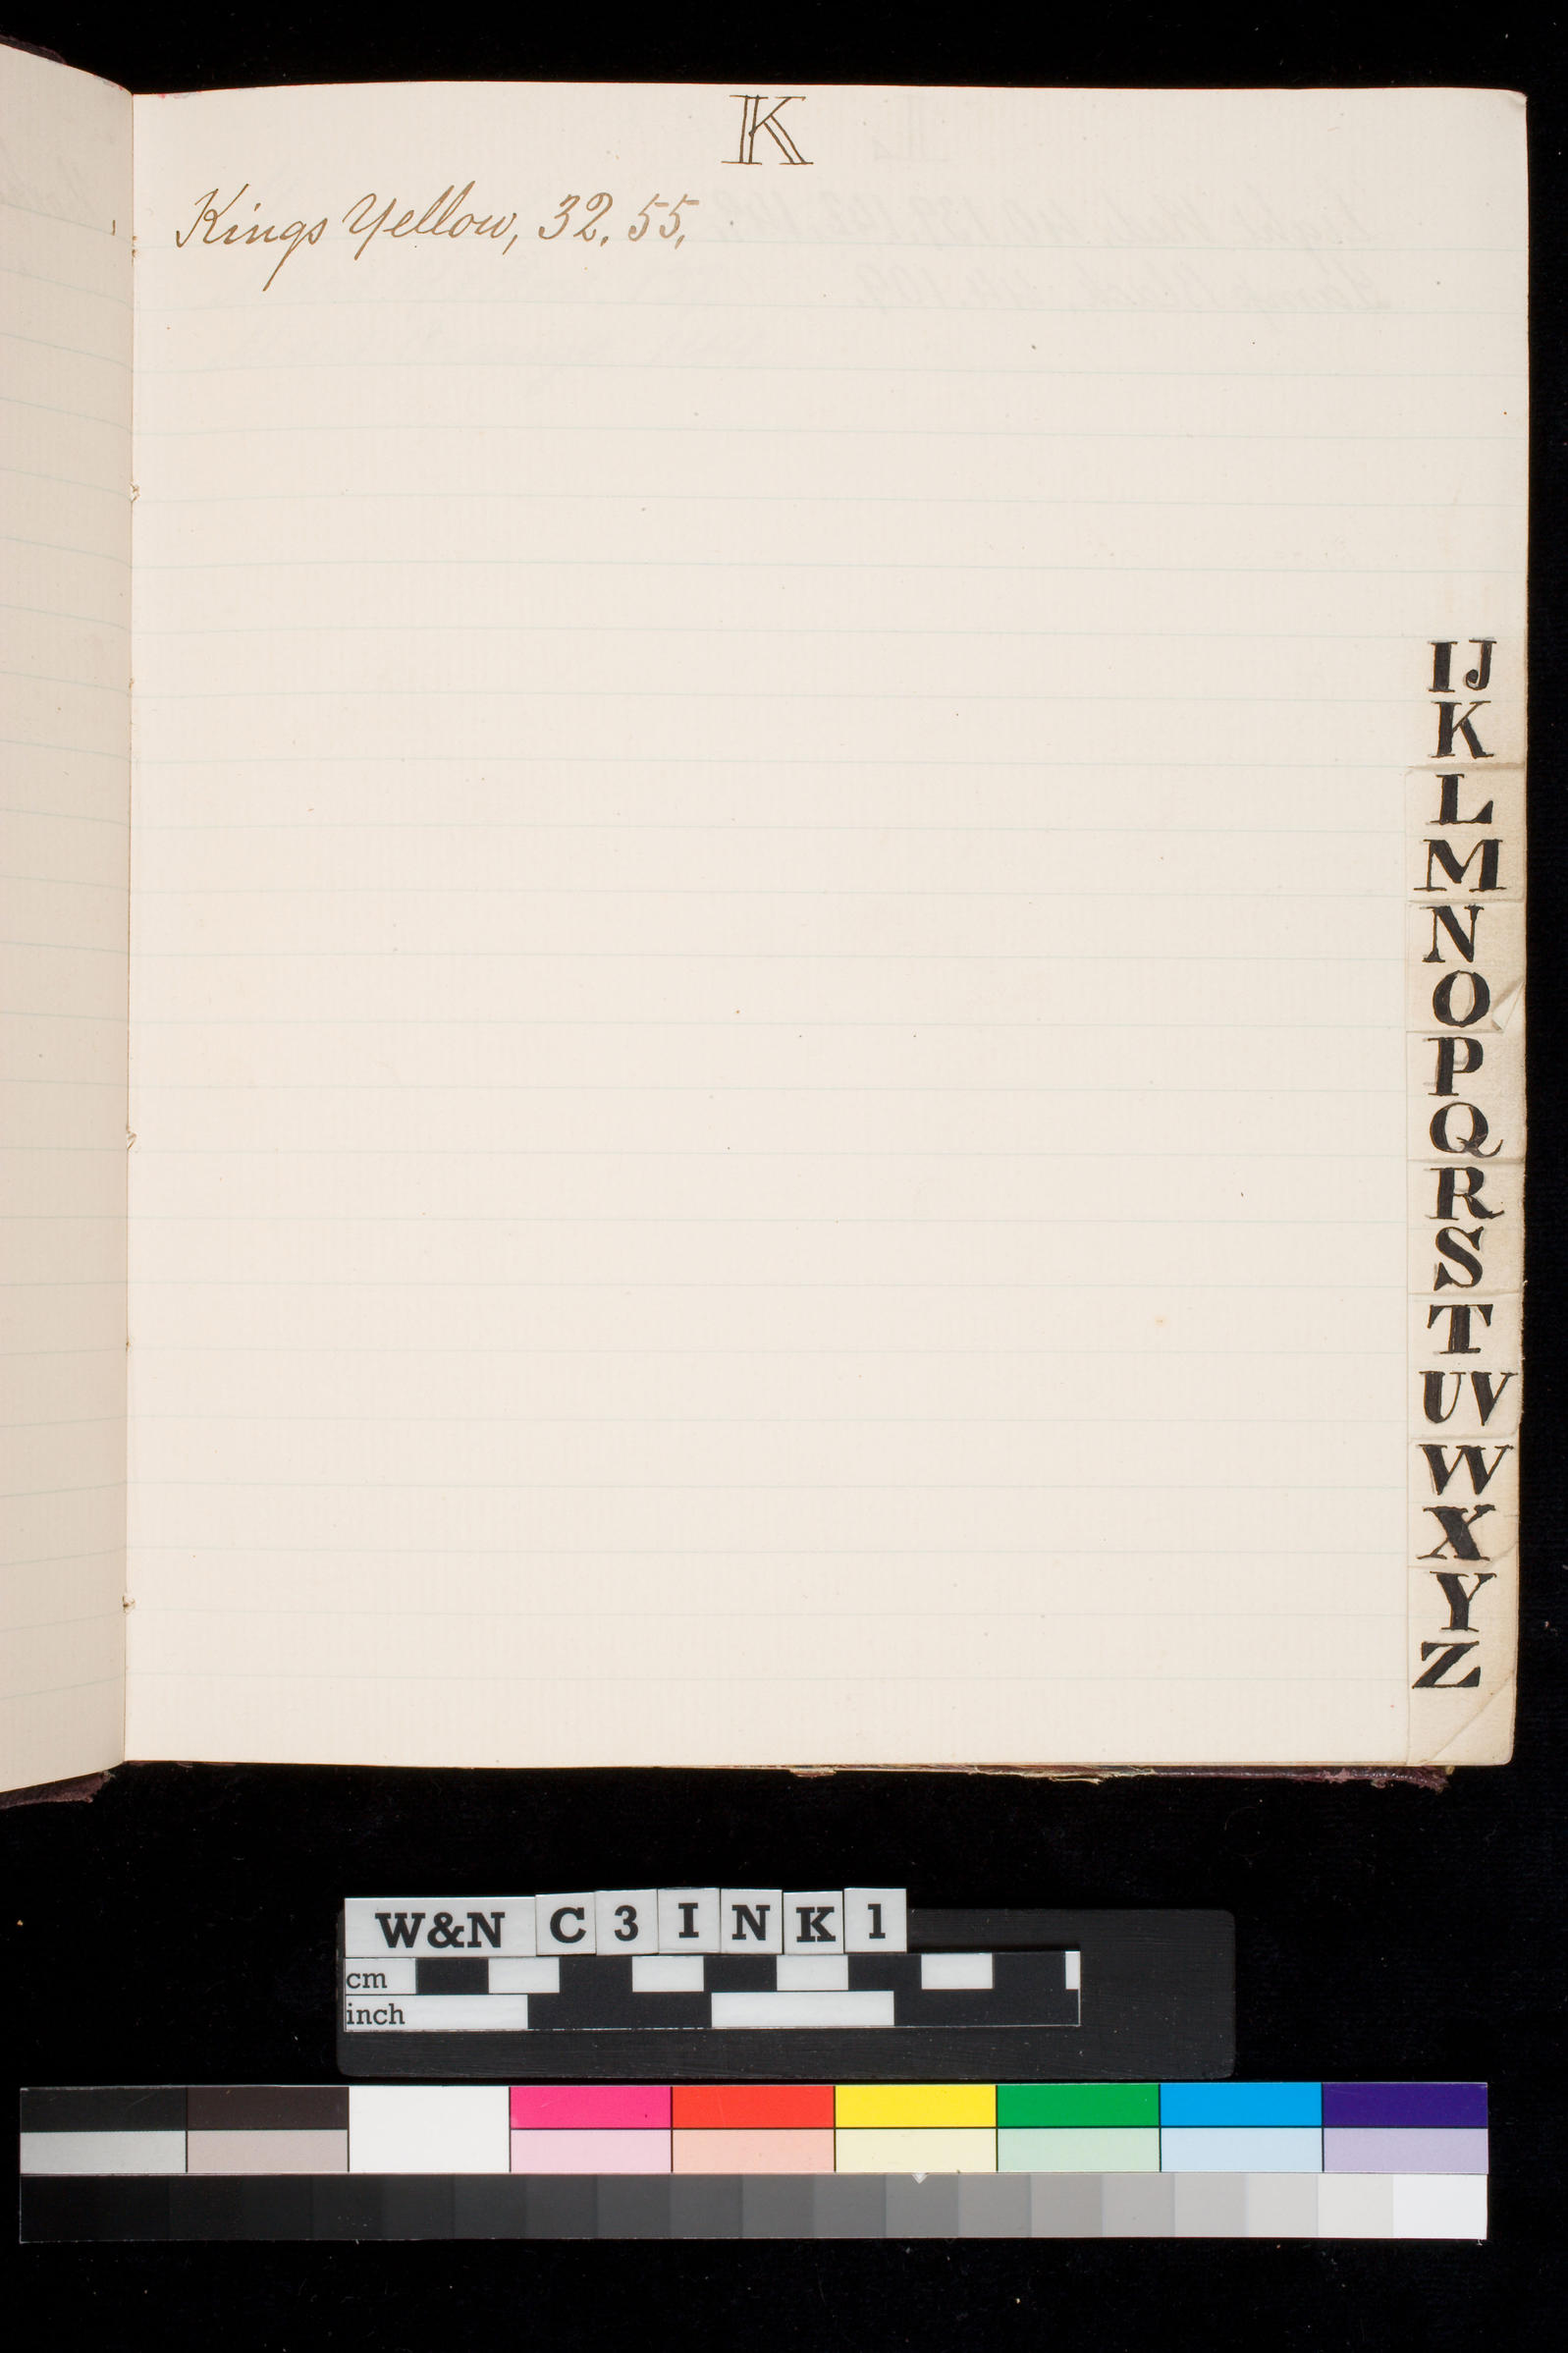 K
Kings Yellow, 32. 55.
IJ
K
L
M
N
O
P
Q
R
S
T
UV
W
X
Y
Z
W&N C 3 I N K 1
cm
inch